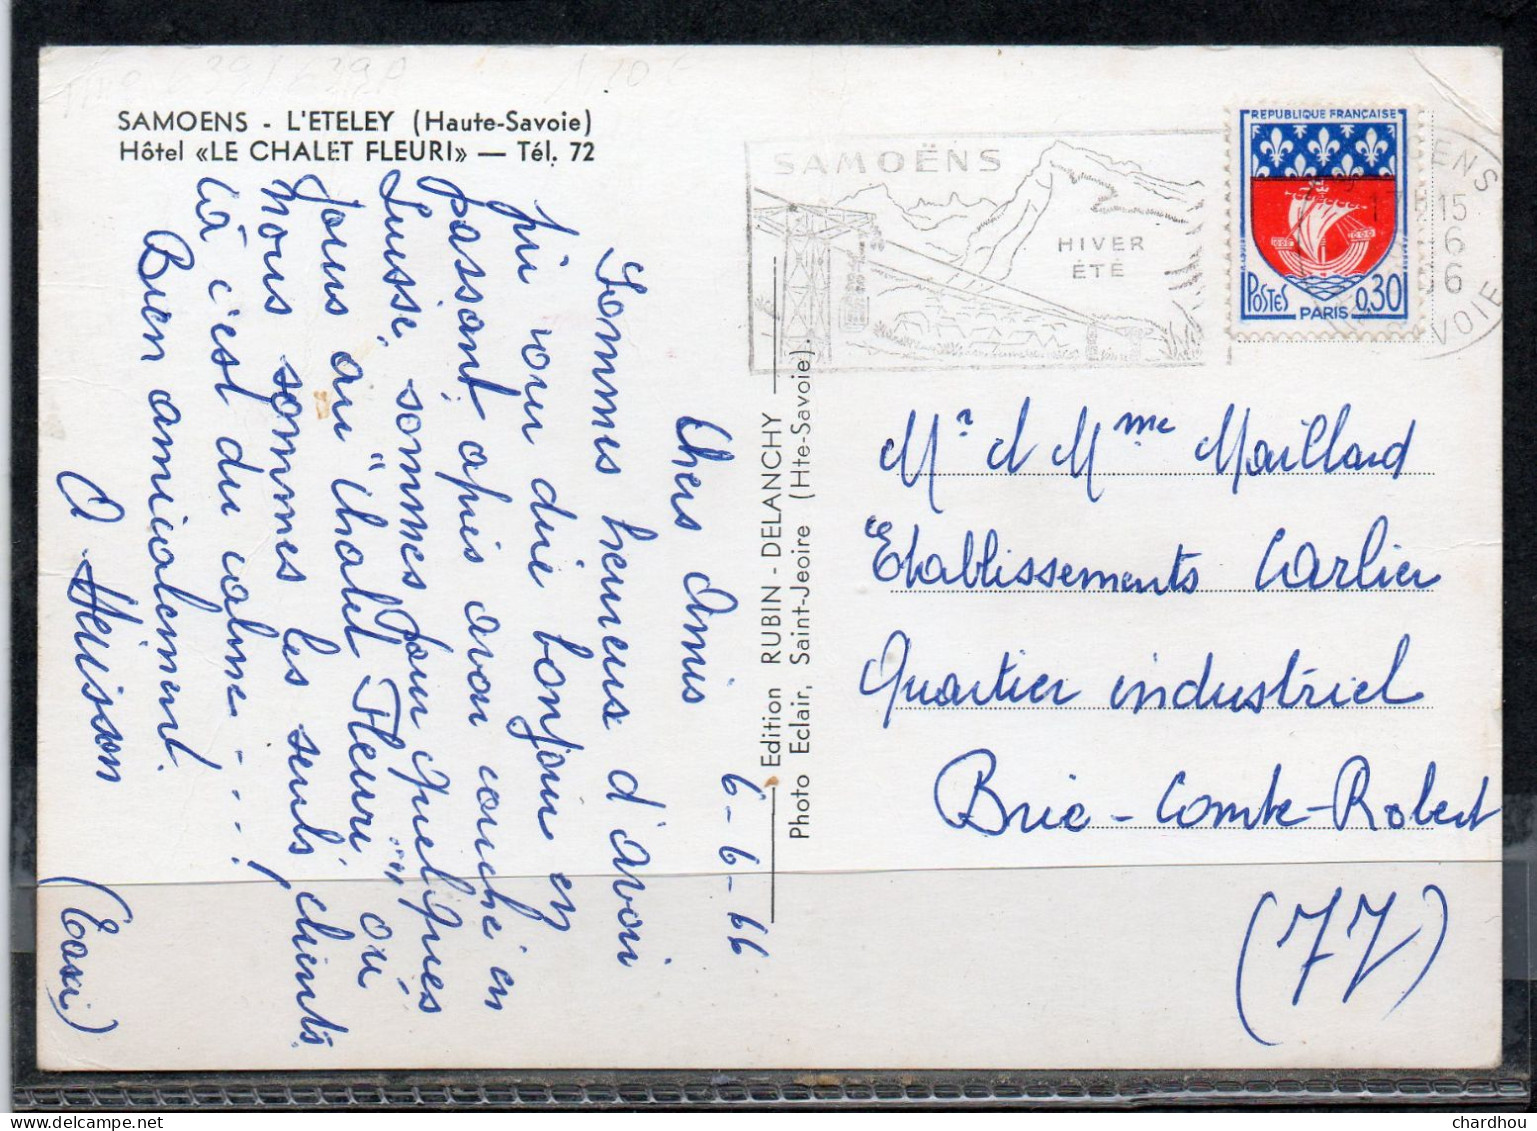 SAMOENS - L'ETELEY (Haute-Savoie)
Hôtel «LE CHALET FLEURI» — Tél. 72
6-6-66
Chers Amis
Sommes heureux d'avoir
pu vous dire bonjour en
passant, après avoir couché en
Suisse, sommes pour quelques
jours au "Chalet Fleuri" où
nous sommes les seuls clients
là c'est du calme - - - !
Bien amicalement.
(Taxi)
Edition RUBIN - DELANCHY
Photo Eclair, Saint-Jeoire (Hte-Savoie).
SAMOËNS
HIVER
ÉTÉ
REPUBLIQUE FRANÇAISE
POSTES
PARIS
0,30
17 15
6
Mr et Mme Maillard
Etablissements Carlier
Quartier industriel
Brie-Comte-Robert
(77)
chardhou